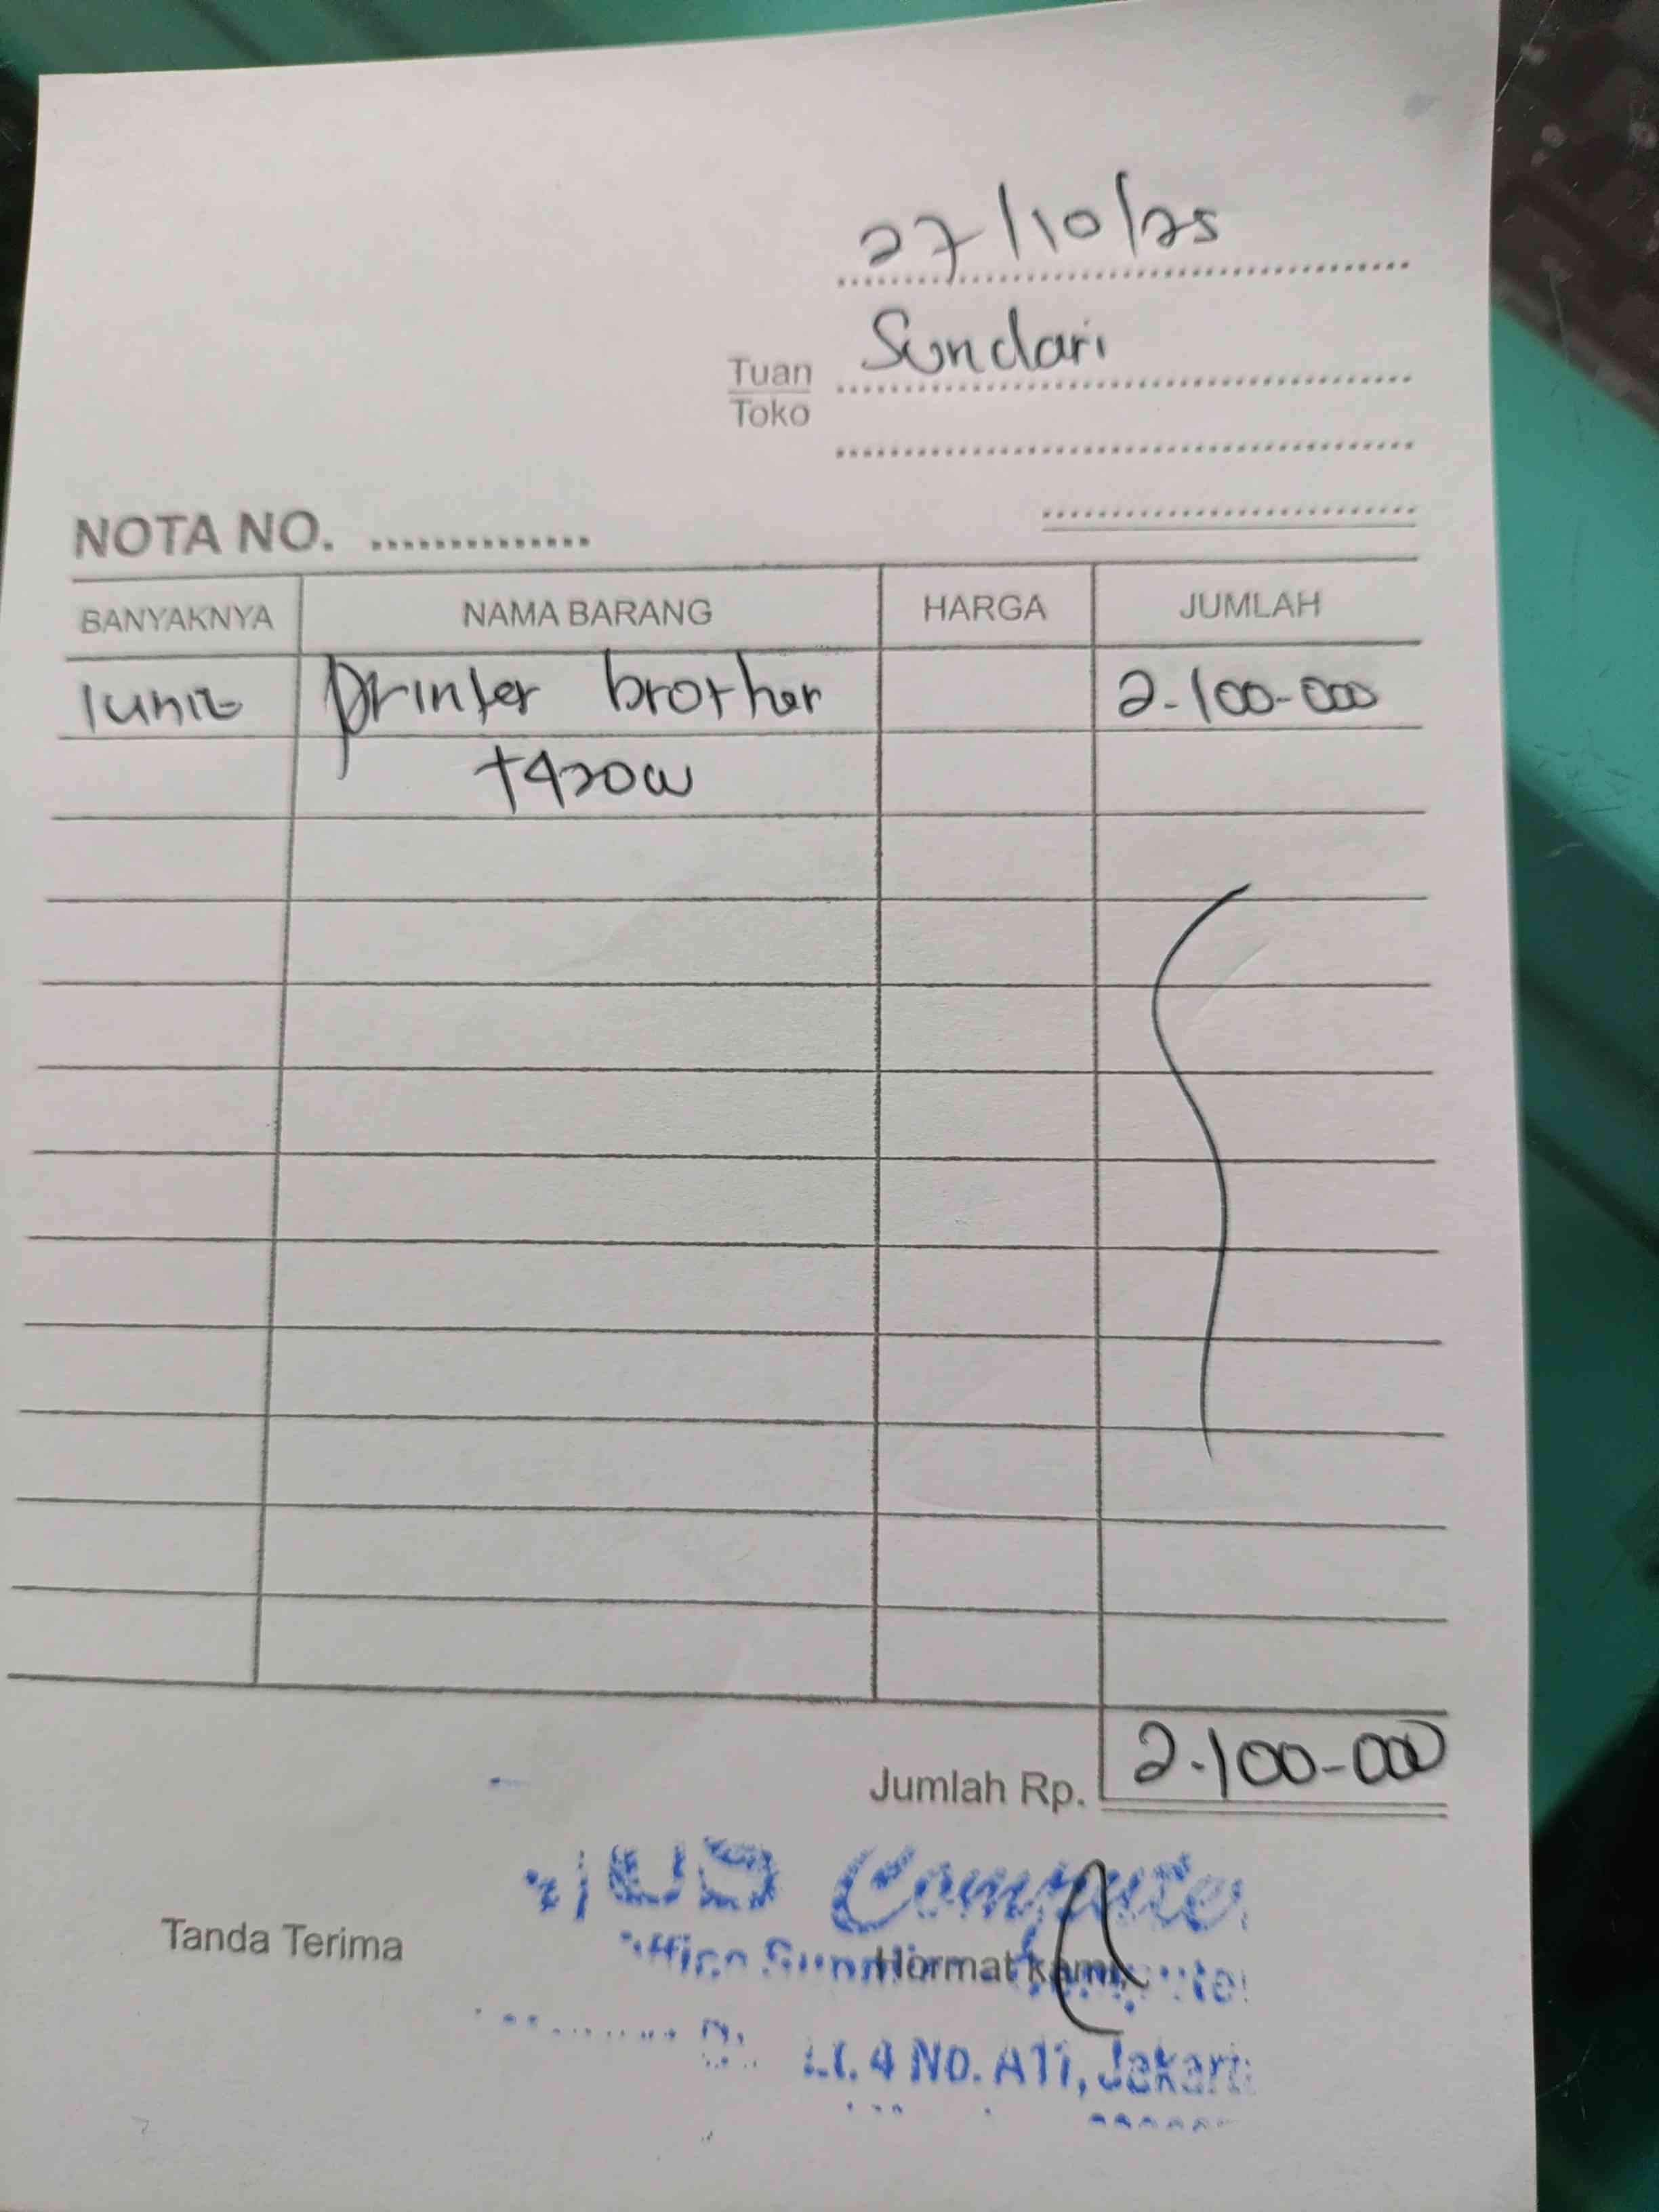 27/10/25
Sundari
Tuan
Toko
NOTA NO. ..............
BANYAKNYA NAMA BARANG HARGA JUMLAH
1 unit printer brother 2-100-000
t420w
Jumlah Rp. 2.100-000
Computer
Tanda Terima
Hormat kami
Lt. 4 No. A11, Jakart